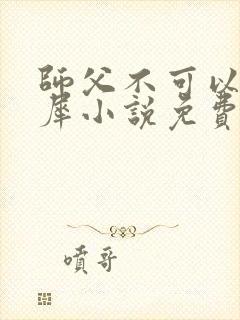 師父不可以
犀小說免費
噴哥